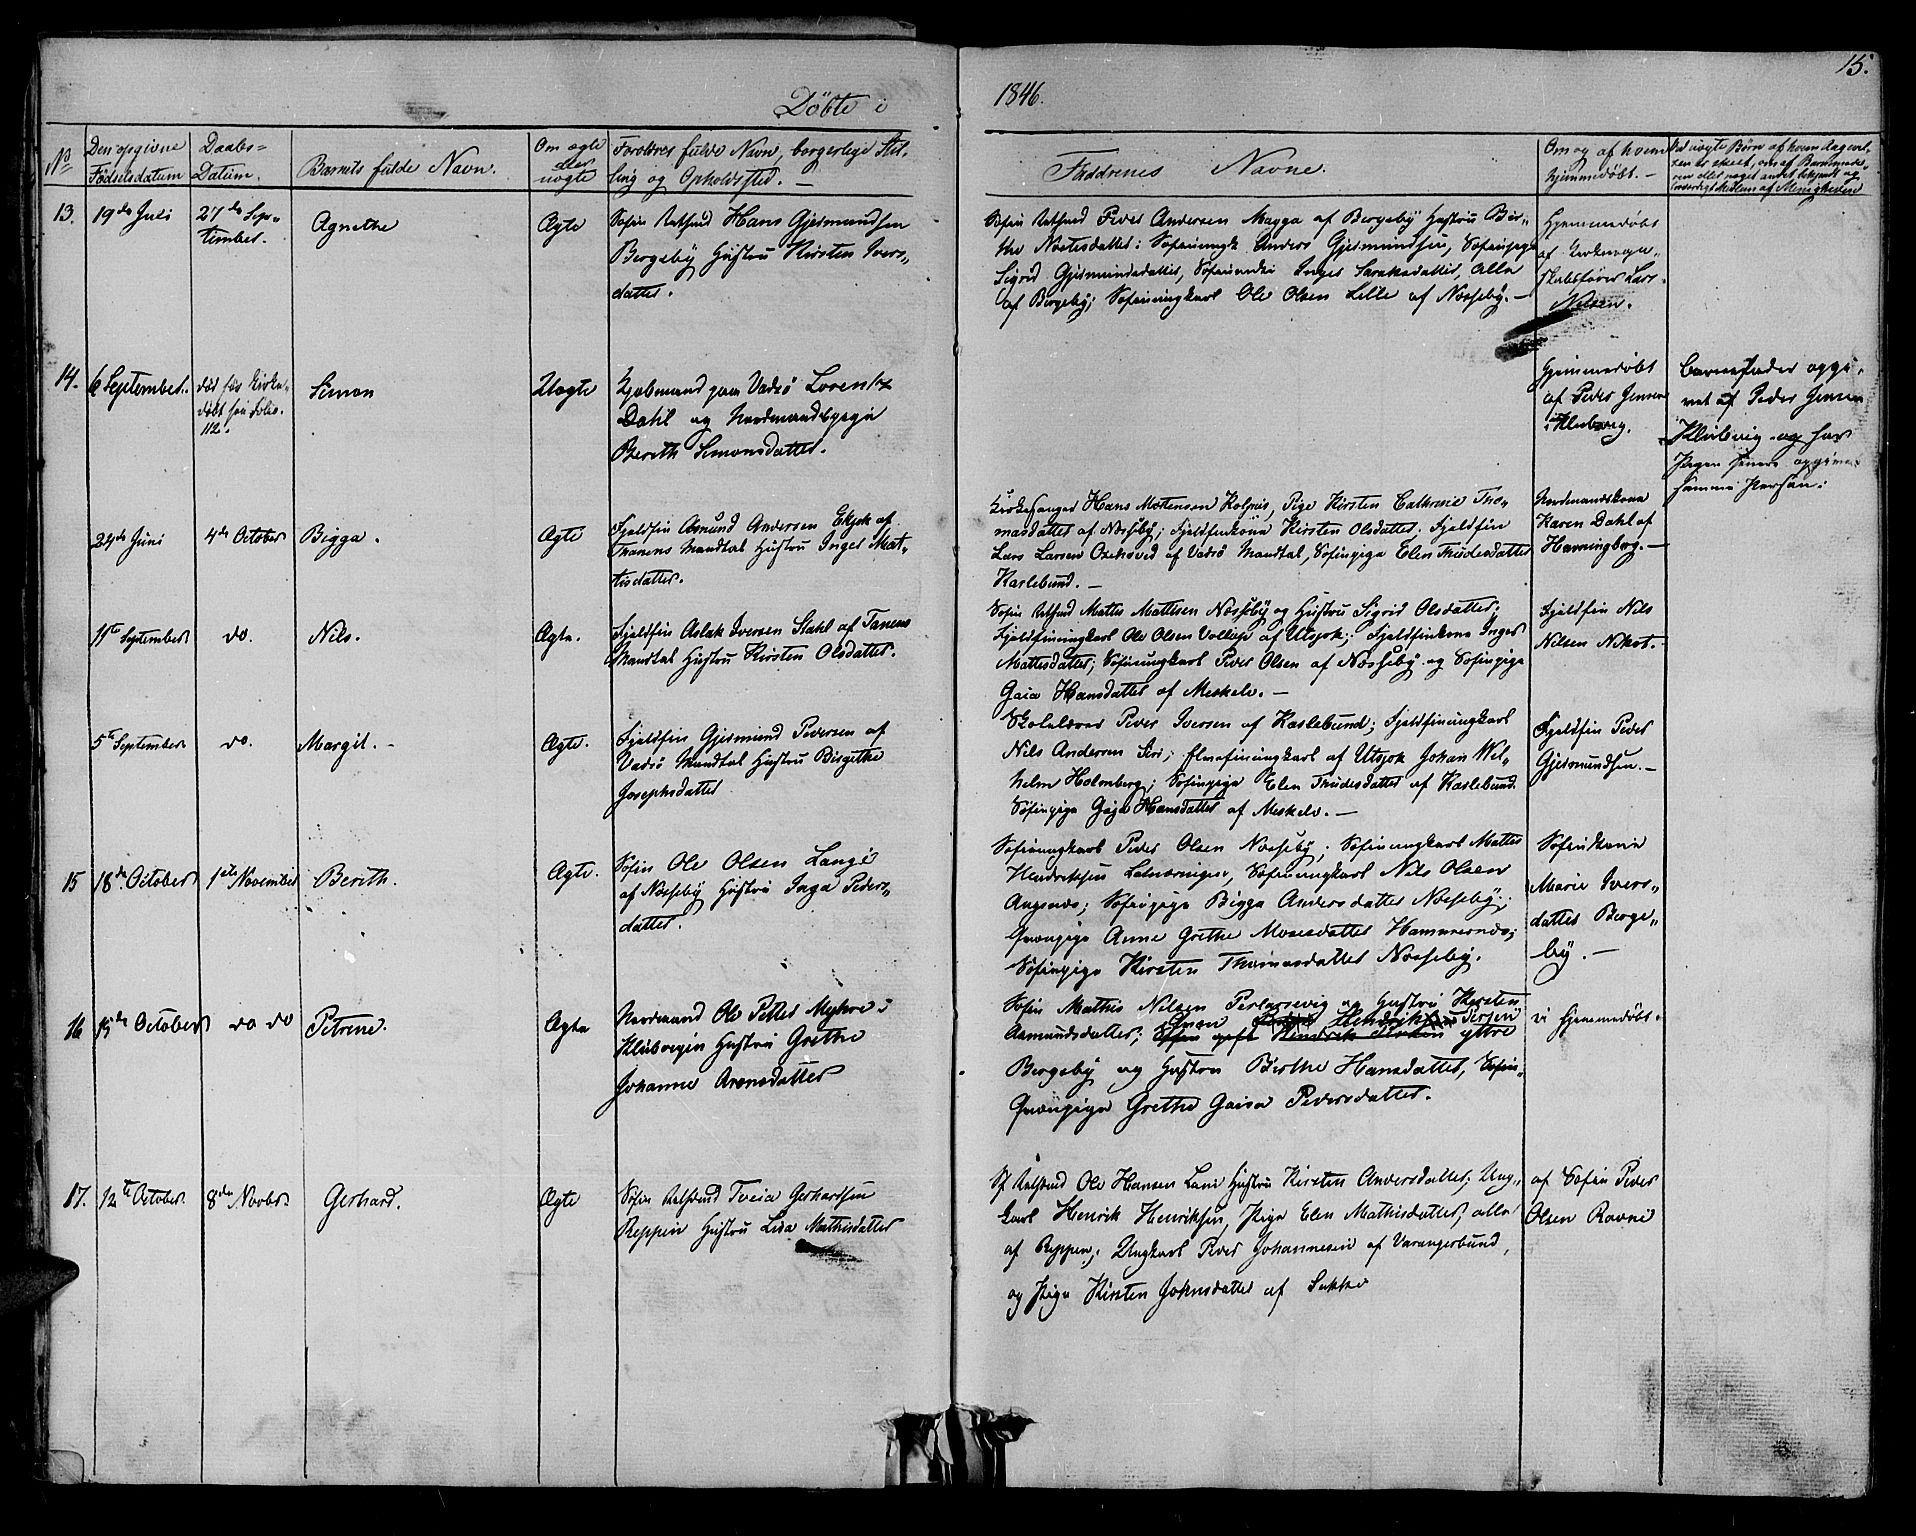 15.
Döbte i 1846.
No
Den opgivne
Födselsdatum
Daabs-
Datum.
Barnets fulde Navn.
Om ægte
eller
uægte
Forældres fulde Navn, borgerlige Stil-
ling og Opholdsted. —
Faddernes Navne.
Om og af hvem
hjemmedøbt. —
13.
19de Juli
27de Sep-
tember.
Agnethe
Ægte
Søfin Retsfind Hans Gjermundsen
Bergeby Hustru Kirsten Ivers-
datter.
Søfin Retsfind Peder Andersen Magga af Bergeby Hustru Bir-
the Nielsdatter; Anders Gjermundsen, Søfinpige
Sigrid Gjermundsdatter, Inger Saraksdatter, alle
af Bergeby; Søfinungkarl Ole Olsen Lille af Næsseby. —
Hjemmedøbt
af
14.
6 September.
död för Kirke-
döbt
112.
Simon
Uægte
Kjøbmand paa Vadsö Lorentz
Dahl og Nordmandspige
Berith Simonsdatter.
Hjemmedøbt
af Peder Jensen
i Klubvig.
Barnefader opgi-
vet af Peder Jensen
Klubvig og har
Pigen senere opgivet
samme Person.
24de Juni
4de October
Bigga.
Ægte
Fjeldfin Asmund Andersen af
Tanens Mandtal Hustru Inger Mat-
tisdatter.
Kirkesanger Hans Mortensen Kolpus, Pige Kirsten Cathrine Tho-
masdatter af Næsseby; Fjeldfinkone Kirsten Olsdatter; Fjeldfin
Lars Larsen af Vadsö Mandtal, Søfinpige Elen Thudesdatter
Karlebund. —
Nordmandskone
Karen Dahl af
Havningberg. —
11te September
do.
Nils.
Ægte.
Fjeldfin Aslak Iversen Stahl af Tanens
Mandtal Hustru Kirsten Olsdatter.
Søfin Retsfind Mattis Mattisen Næsseby og Hustru Sigrid Olsdatter;
Fjeldfinungkarl Ole Olsen Vollup af Utsjok; Fjeldfinkone Inger
Mattisdatter; Søfinungkarl Peder Olsen af Næsseby og Søfinpige
Gaia Hansdatter af Meskelv. —
Fjeldfin Nils
Nilsen Nikot. —
5te September
do.
Margit. —
Ægte.
Fjeldfin Gjermund Pedersen af
Vadsö Mandtal Hustru Birgithe
Josephsdatter
Skolelærer Peder Iversen af Karlebund; Fjeldfinungkarl
Nils Andersen Siri; Elvefinungkarl af Utsjok Johan Wil-
helm Holmberg; Søfinpige Elen Thudesdatter af Karlebund.
Søfinpige Gaja Hansdatter af Meskelv. —
Fjeldfin Peder
Gjermundsen. —
15
18de October
1ste November
Berith.
Ægte.
Søfin Ole Olsen Lange
af Næsseby Hustru Inga Peders-
datter.
Søfinungkarl Peder Olsen Næsseby; Søfinungkarl Mattis
Hendriksen Latnæringen, Søfinungkarl Nils Olsen
Angsnæs; Søfinpige Bigga Andersdatter Næsseby;
Qvænpige Anne Grethe Mosesdatter Hammernæs;
Søfinpige Kirsten Thomasdatter Næsseby.
Søfinkone
Marie Ivers-
datter Berge-
by. —
16
15de October
do do
Petrine.
Ægte
Nordmand Ole Petter Myhre i
Klubvigen Hustru Grethe
Johanne Arensdatter
Søfin Mathis Nilsen Perlarsevig og Hustru Kirsten
Asmundsdatter; Qvæn Hendriksen Iversen
Søfin gift Hendrik Iversen yttre
Bergeby og Hustru Birthe Hansdatter, Søfin-
Qvænpige Grethe Gaisa Pedersdatter.
ei hjemmedøbt.
17.
12te October.
8de Novbr.
Gerhard.
Ægte
Søfin Retsfind Tveia Gerhardsen
Reppen Hustru Lisa Mathisdatter
Sf Retsfind Ole Hansen Lani Hustru Kirsten Andersdatter; Ung-
karl Henrik Henriksen, Pige Elen Mathisdatter, alle
af Reppen; Ungkarl Peder Johannesen af Varangerbund,
og Pige Kirsten Johnsdatter af
af Søfin Peder
Olsen Ravne